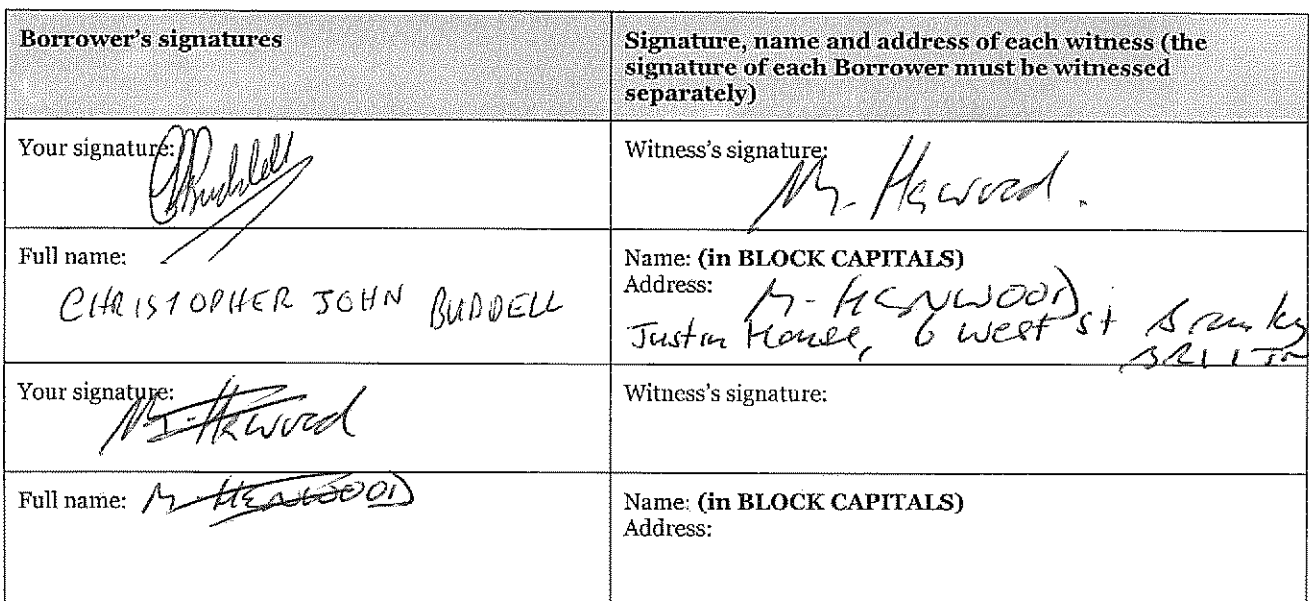 Borrower's signatures
Signature, name and address of each witness (the
signature of each Borrower must be witnessed
separately)
Your signature:
Witness's signature:
M. Henwood.
Full name:
CHRISTOPHER JOHN BUDDELL
Name: (in BLOCK CAPITALS)
Address:
M. HENWOOD
Justin House, 6 West St
Your signature:
M. Henwood
Witness's signature:
Full name: M HENWOOD
Name: (in BLOCK CAPITALS)
Address: